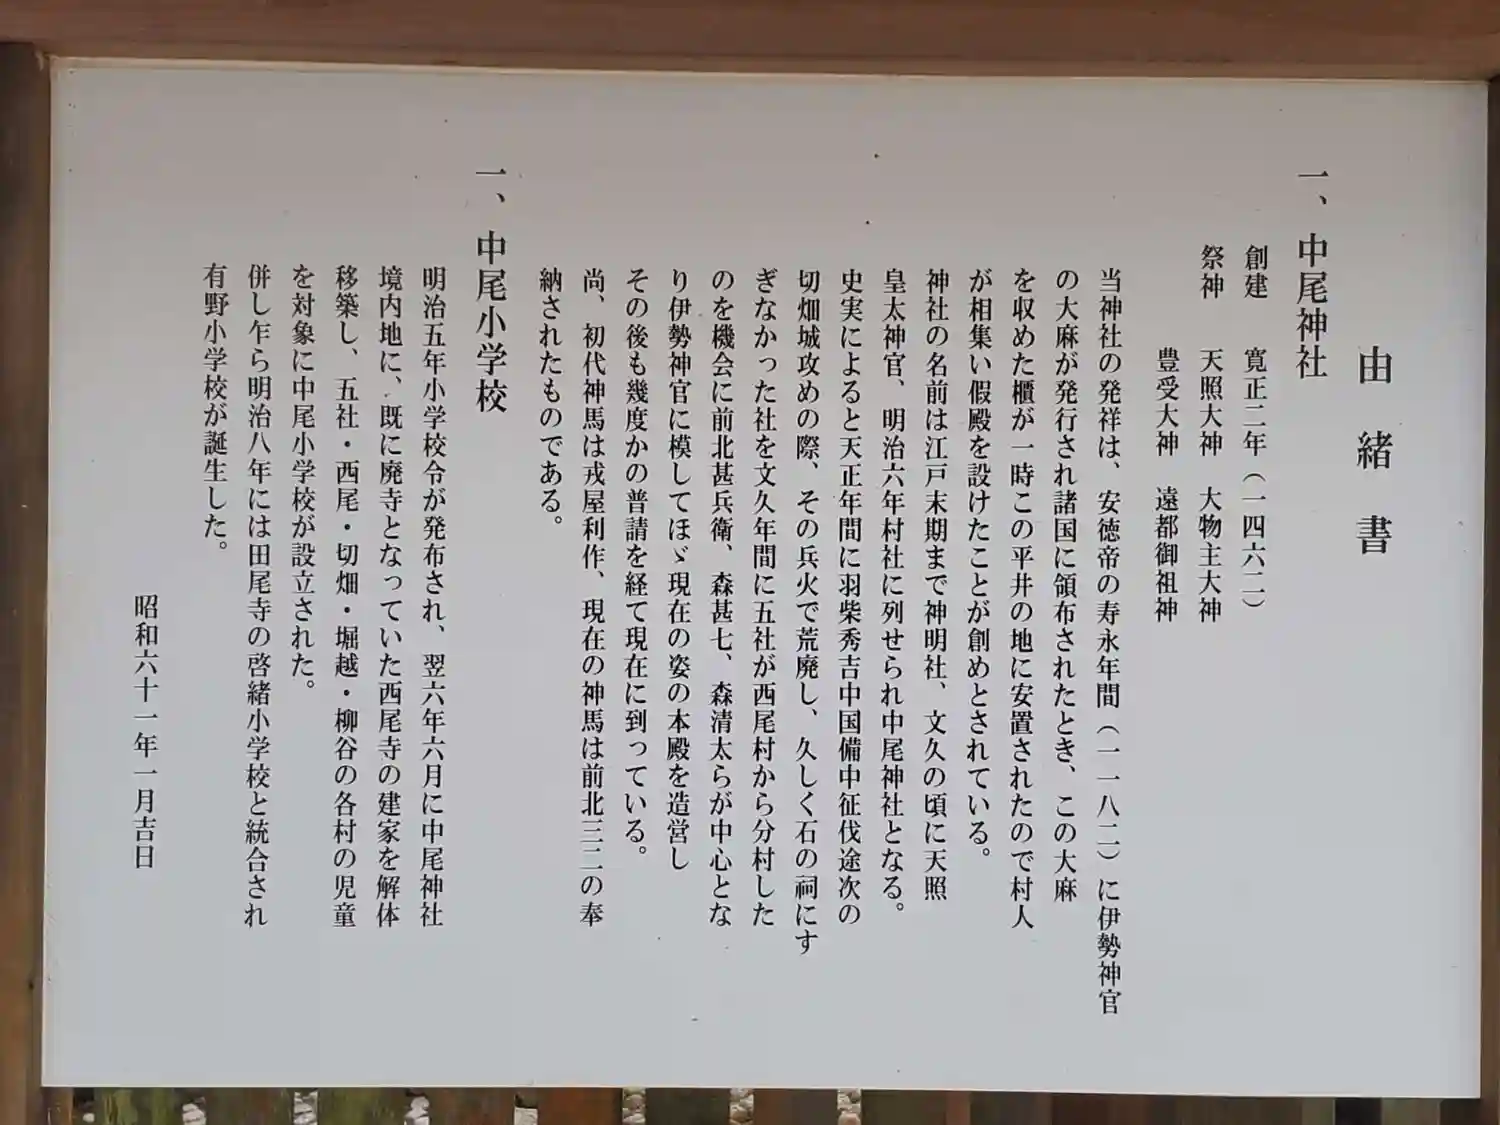 由緒書
一、中尾神社
創建　寛正二年（一四六二）
祭神　天照大神　大物主大神
豊受大神　遠都御祖神
当神社の発祥は、安徳帝の寿永年間（一一八二）に伊勢神官
の大麻が発行され諸国に領布されたとき、この大麻
を収めた櫃が一時この平井の地に安置されたので村人
が相集い假殿を設けたことが創めとされている。
神社の名前は江戸末期まで神明社、文久の頃に天照
皇太神官、明治六年村社に列せられ中尾神社となる。
史実によると天正年間に羽柴秀吉中国備中征伐途次の
切畑城攻めの際、その兵火で荒廃し、久しく石の祠にす
ぎなかった社を文久年間に五社が西尾村から分村した
のを機会に前北甚兵衛、森甚七、森清太らが中心とな
り伊勢神官に模してほゞ現在の姿の本殿を造営し
その後も幾度かの普請を経て現在に到っている。
尚、初代神馬は戎屋利作、現在の神馬は前北三二の奉
納されたものである。
一、中尾小学校
明治五年小学校令が発布され、翌六年六月に中尾神社
境内地に、既に廃寺となっていた西尾寺の建家を解体
移築し、五社・西尾・切畑・堀越・柳谷の各村の児童
を対象に中尾小学校が設立された。
併し乍ら明治八年には田尾寺の啓緒小学校と統合され
有野小学校が誕生した。
昭和六十一年一月吉日